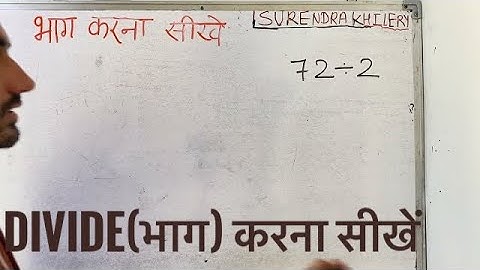 भाग करना सीखे
SURENDRA KHILERY
72÷2
DIVIDE(भाग) करना सीखें